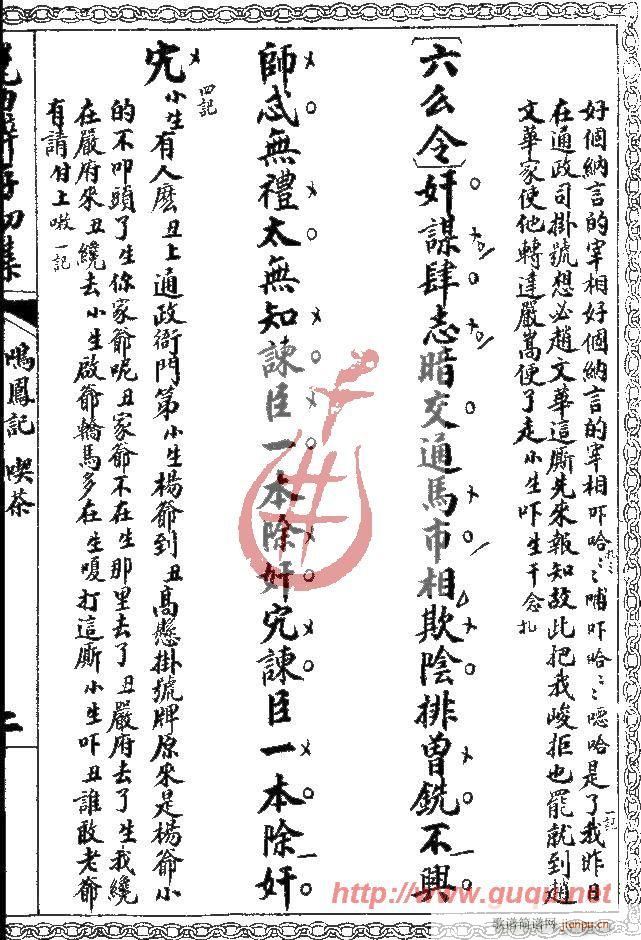 好個納言的宰相好個納言的宰相吓哈哺吓哈噁哈是了我昨日
一記
在通政司掛號想必趙文華這厮先來報知故此把我峻拒也罷就到趙
文華家使他轉達嚴嵩便了走小生吓生干念扎
〔六么令〕奸謀肆志暗交通馬市相欺陰排曾銑不興
師忒無禮太無知諫臣一本除奸宄諫臣一本除奸
宄
四記
小生有人麽丑上通政衙門第小生楊爺到丑高懸掛號牌原來是楊爺小
的不叩頭了生你家爺呢丑家爺不在生那里去了丑嚴府去了生我纔
在嚴府來丑纔去小生啟爺轎馬多在生嗄打這厮小生吓丑誰敢老爺
有請付上嗷一記
鳴鳳記 喫茶
二
http://www.guqu.net
歌谱简谱网
jianpu.cn